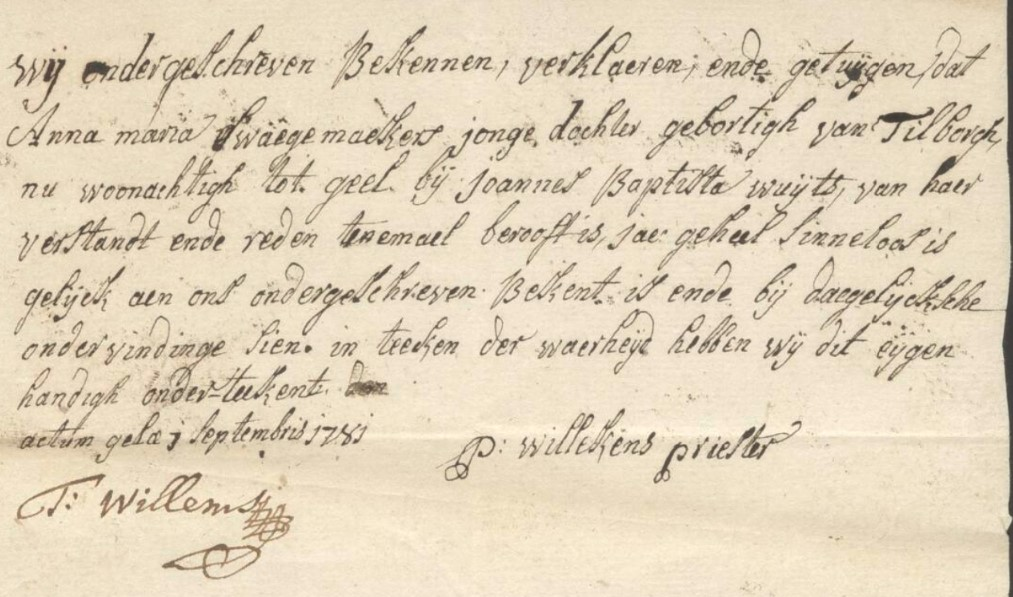 wij ondergeschreven Bekennen, verklaeren, ende getuijgen, dat
Anna maria Swaegemaekers jonge dochter gebortigh van Tilborgh,
nu woonachtigh tot geel bij joannes Baptista wuijts, van haer
verstandt ende reden tenemael berooft is, jae geheel sinneloos is
gelijck aen ons ondergeschreven Bekent is ende bij daegelijcksche
ondervindinge sien. in teecken der waerheijd hebben wij dit eijgen
handigh onder-teekent.
actum gelæ 7 septembris 1781
P: willekens priester
T: Willems